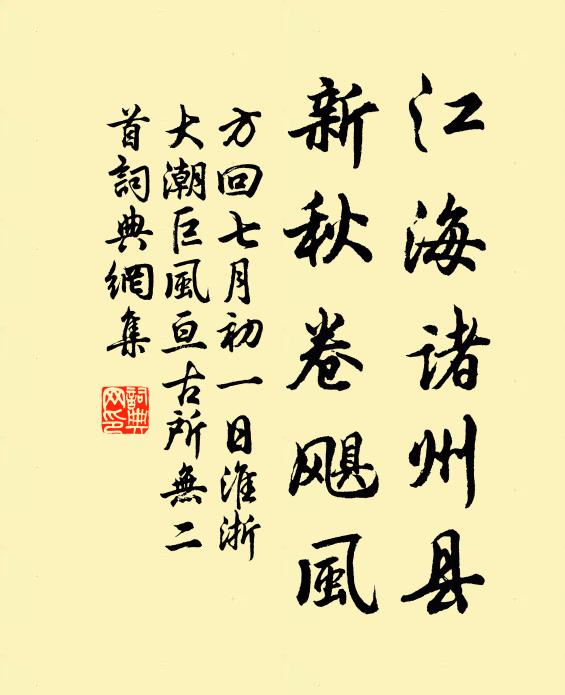 江海诸州县
新秋卷飓風
方回七月初一日淮浙
大潮巨風亘古所無二
首詞典網集
詞典
网印